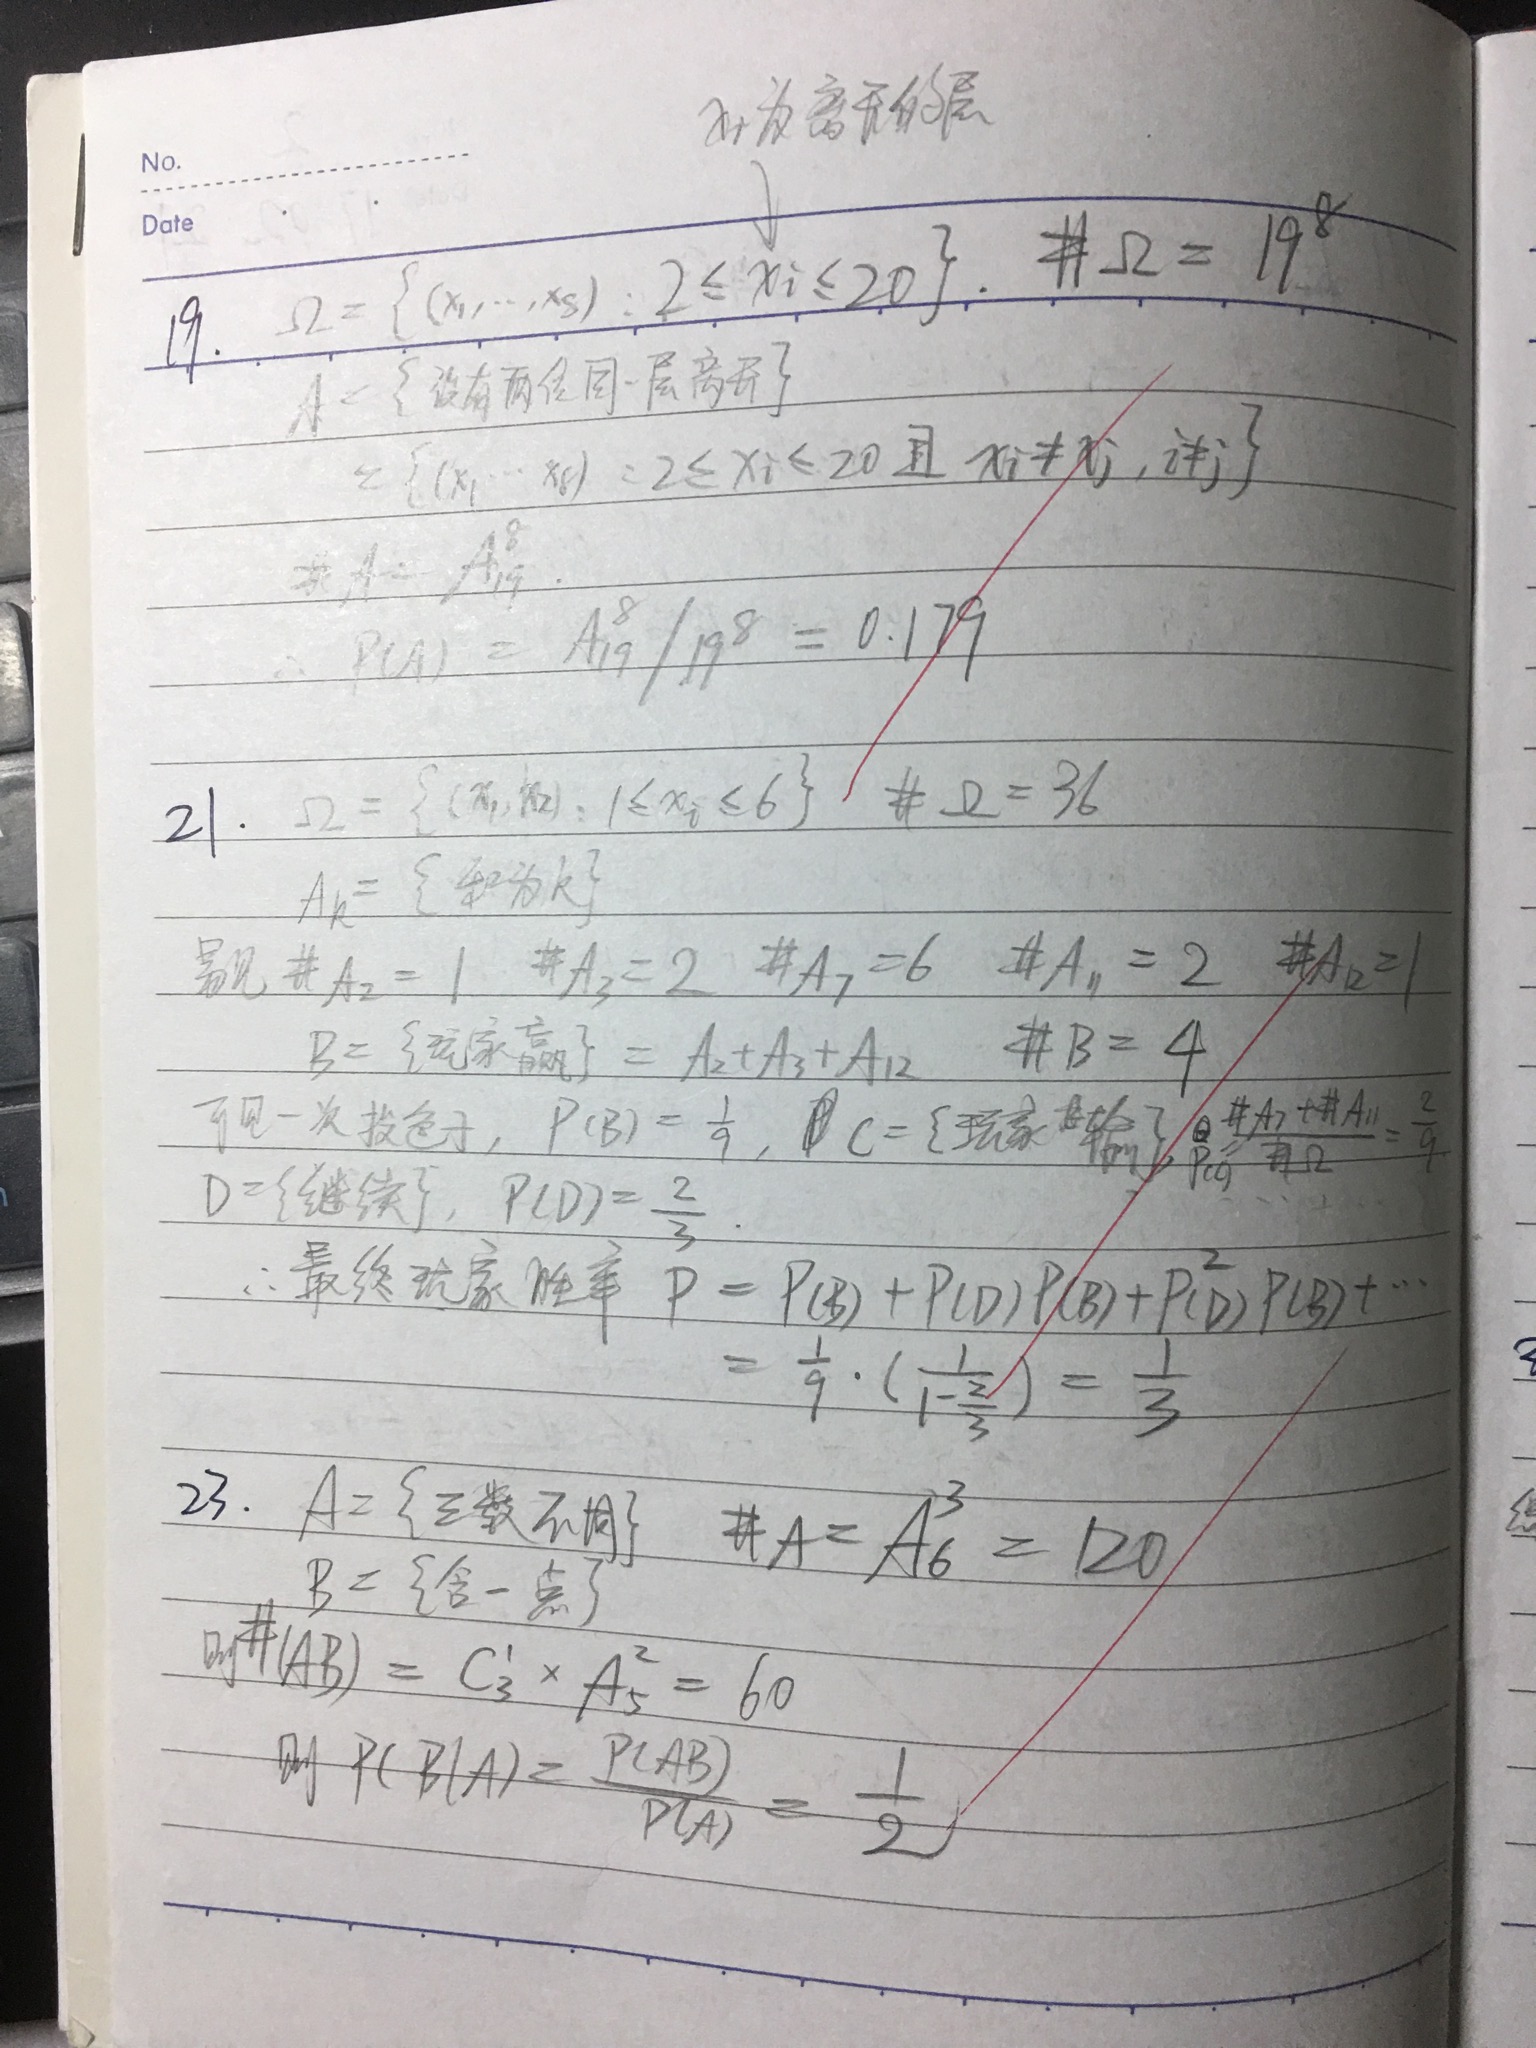 x₁为离开的层
No.
Date
19. Ω = {(x₁,…,x₈) : 2 ≤ xᵢ ≤ 20}. #Ω = 19⁸
A = {没有两位同一层离开}
= {(x₁…x₈) : 2 ≤ xᵢ ≤ 20 且 xᵢ ≠ xⱼ, i≠j}
#A = A₁₉⁸.
∴ P(A) = A₁₉⁸/19⁸ = 0.179
21. Ω = {(x₁,x₂) : 1 ≤ xᵢ ≤ 6} #Ω = 36
Aₖ = {和为k}
易见 #A₂ = 1 #A₃ = 2 #A₇ = 6 #A₁₁ = 2 #A₁₂ = 1
B = {玩家赢} = A₂+A₃+A₁₂ #B = 4
可见一次投色子, P(B) = 1/9, C = {玩家输}, P(C) = (#A₇+#A₁₁)/#Ω = 2/9
D = {继续}, P(D) = 2/3.
∴ 最终玩家胜率 P = P(B) + P(D)P(B) + P²(D)P(B) + …
= 1/9 · (1/(1-2/3)) = 1/3
23. A = {三数不同} #A = A₆³ = 120
B = {含一点}
则#(AB) = C₃¹ × A₅² = 60
则 P(B|A) = P(AB)/P(A) = 1/2